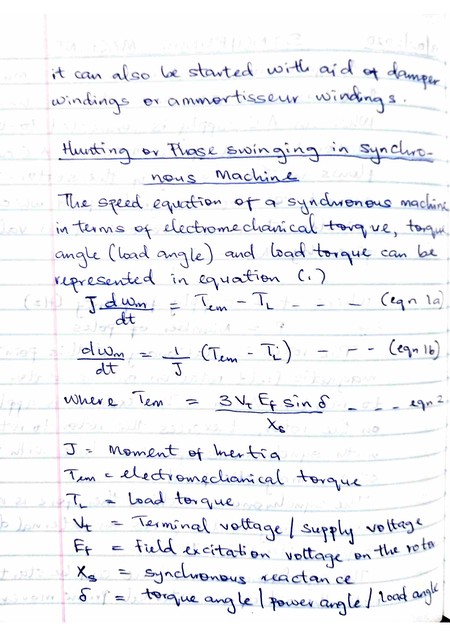 it can also be started with aid of damper
windings or ammortisseur windings.
Hunting or Phase swinging in synchro-
nous Machine
The speed equation of a synchronous machine
in terms of electromechanical torque, torque
angle (load angle) and load torque can be
represented in equation (1)
J dωm/dt = Tem - TL - - - (eqn 1a)
dωm/dt = 1/J (Tem - TL) - - - (eqn 1b)
where Tem = 3 Vt Ef sin δ / Xs - - - eqn 2
J = Moment of Inertia
Tem = electromechanical torque
TL = Load torque
Vt = Terminal voltage / supply voltage
Ef = field excitation voltage on the rotor
Xs = synchronous reactance
δ = torque angle / power angle / load angle